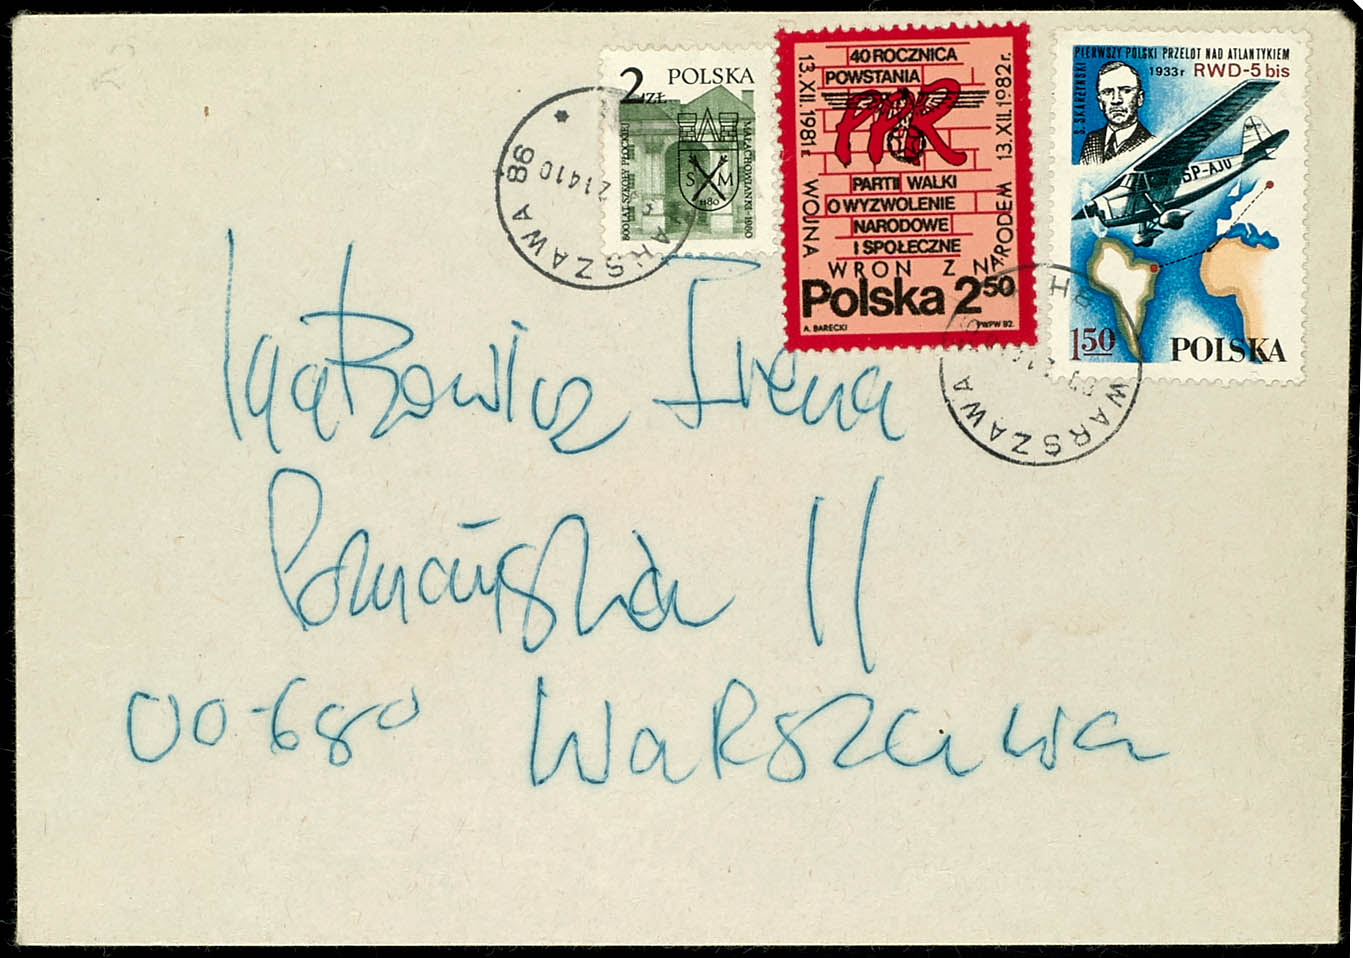 2 POLSKA
ZŁ
800 LAT SZKOŁY PŁOCKIEJ
MAŁACHOWIANKI-1980
S M
1180
WARSZAWA 86
21410
13.XII.1981r.
40 ROCZNICA
POWSTANIA
PPR
PARTII WALKI
O WYZWOLENIE
NARODOWE
I SPOŁECZNE
13.XII.1982r.
WOJNA
WRON Z NARODEM
Polska 2⁵⁰
A. BARECKI
PWPW 82.
PIERWSZY POLSKI PRZELOT NAD ATLANTYKIEM
1933r RWD-5 bis
S. SKARŻYŃSKI
SP-AJU
1⁵⁰
POLSKA
WARSZAWA
Irena
Poznańska 11
00-680 Warszawa